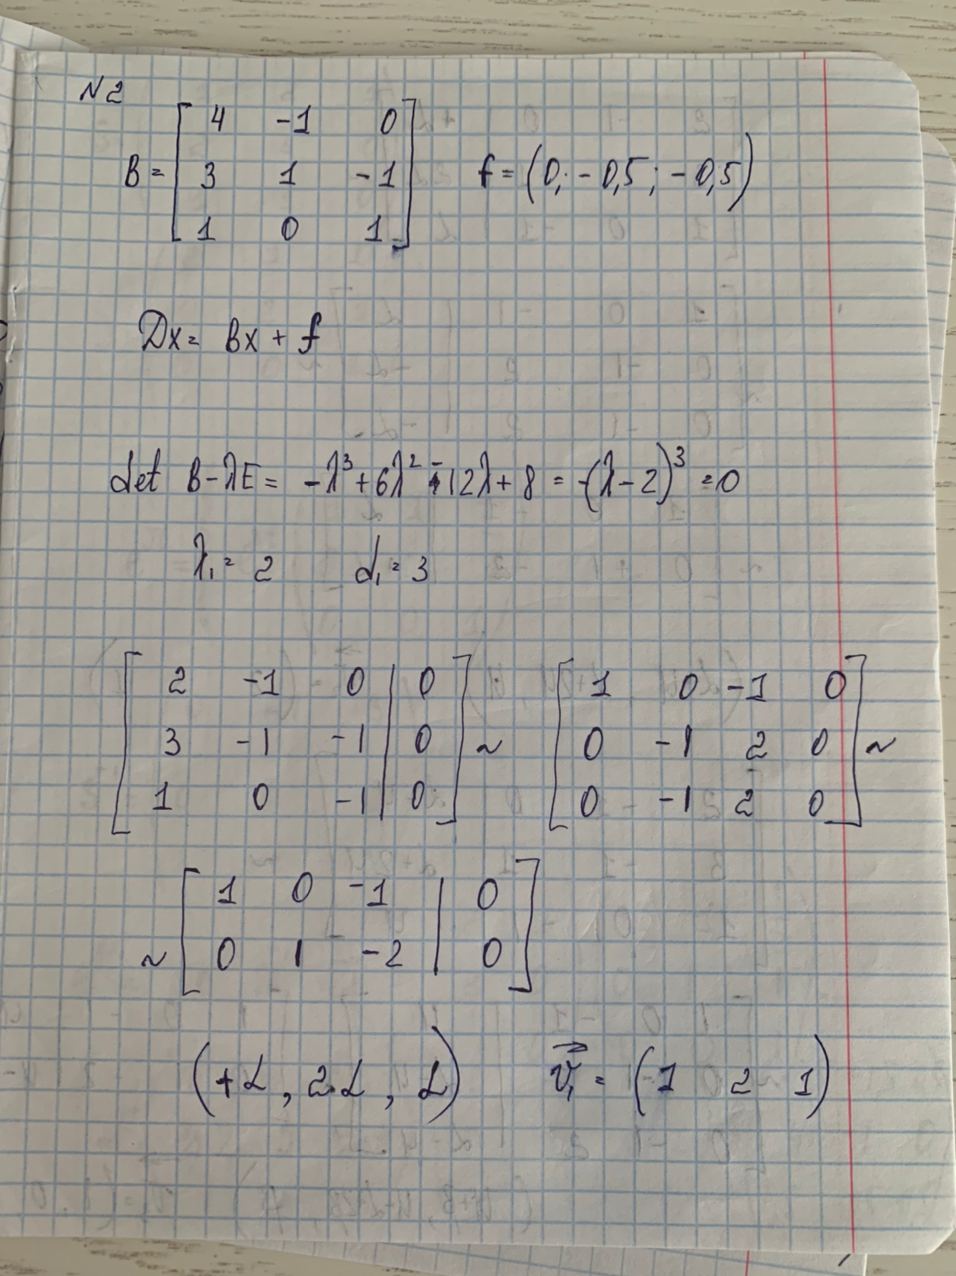 N2
B = [ 4 -1 0
3 1 -1
1 0 1 ] f = (0; -0,5; -0,5)
Dx = Bx + f
det B-λE = -λ³+6λ²-12λ+8 = -(λ-2)³ = 0
λ₁ = 2 α₁ = 3
[ 2 -1 0 | 0 ] [ 1 0 -1 0 ]
[ 3 -1 -1 | 0 ] ~ [ 0 -1 2 0 ] ~
[ 1 0 -1 | 0 ] [ 0 -1 2 0 ]
~ [ 1 0 -1 | 0
0 1 -2 | 0 ]
(+α, 2α, α) v₁ = (1 2 1)